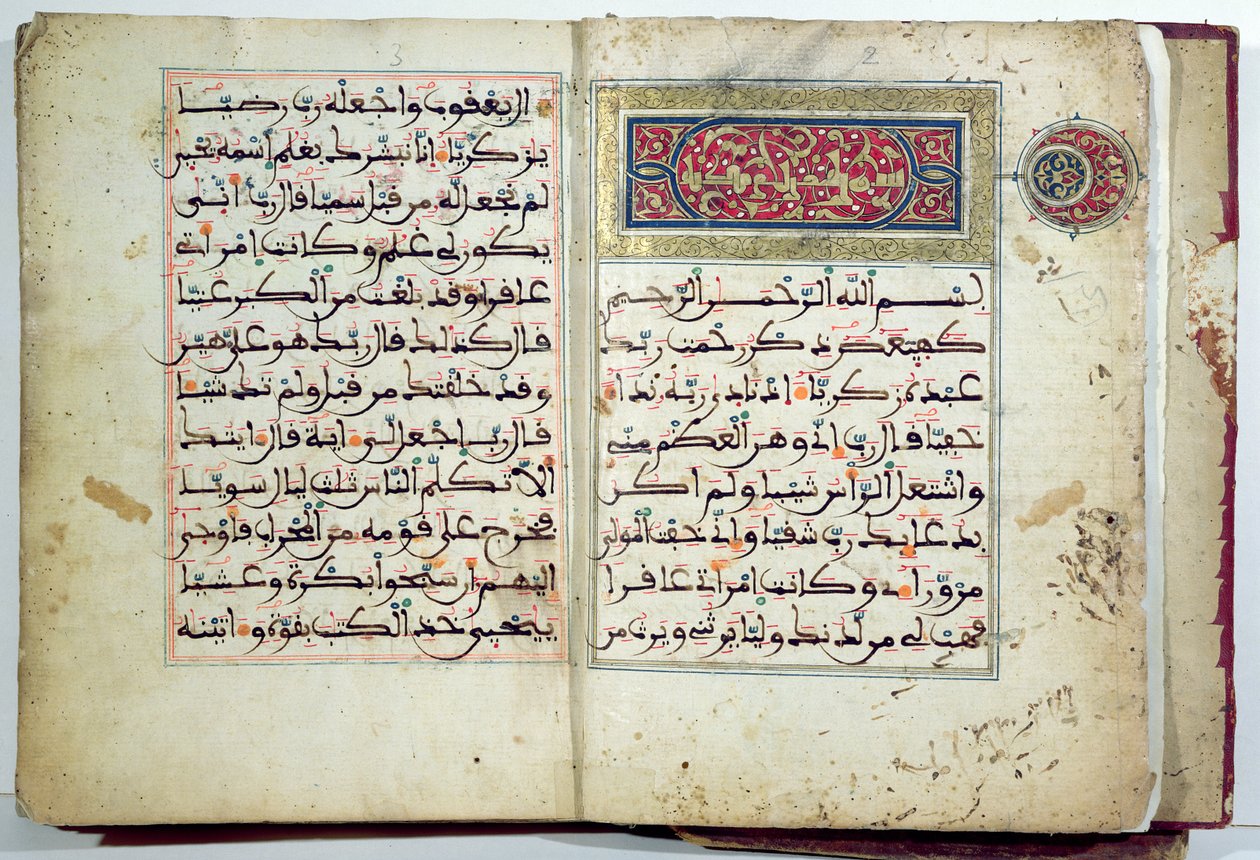 2
بسم الله الرحمن الرحيم
كهيعص ذكر رحمت ربك
عبده زكرياء اذ نادى ربه نداء
خفيا قال رب اني وهن العظم مني
واشتعل الراس شيبا ولم اكن
بدعايك رب شقيا واني خفت المولي
من وراءي وكانت امراتي عاقرا
فهب لي من لدنك وليا يرثني ويرث من
3
ال يعقوب واجعله رب رضيا
يزكرياء انا نبشرك بغلم اسمه يحيى
لم نجعل له من قبل سميا قال رب انى
يكون لي غلم وكانت امراتي
عاقرا وقد بلغت من الكبر عتيا
قال كذلك قال ربك هو علي هين
وقد خلقتك من قبل ولم تك شيا
قال رب اجعل لي ءاية قال ءايتك
الا تكلم الناس ثلث ليال سويا
فخرج على قومه من المحراب فاوحى
اليهم ان سبحوا بكرة وعشيا
ييحيى خذ الكتب بقوة وءاتينه